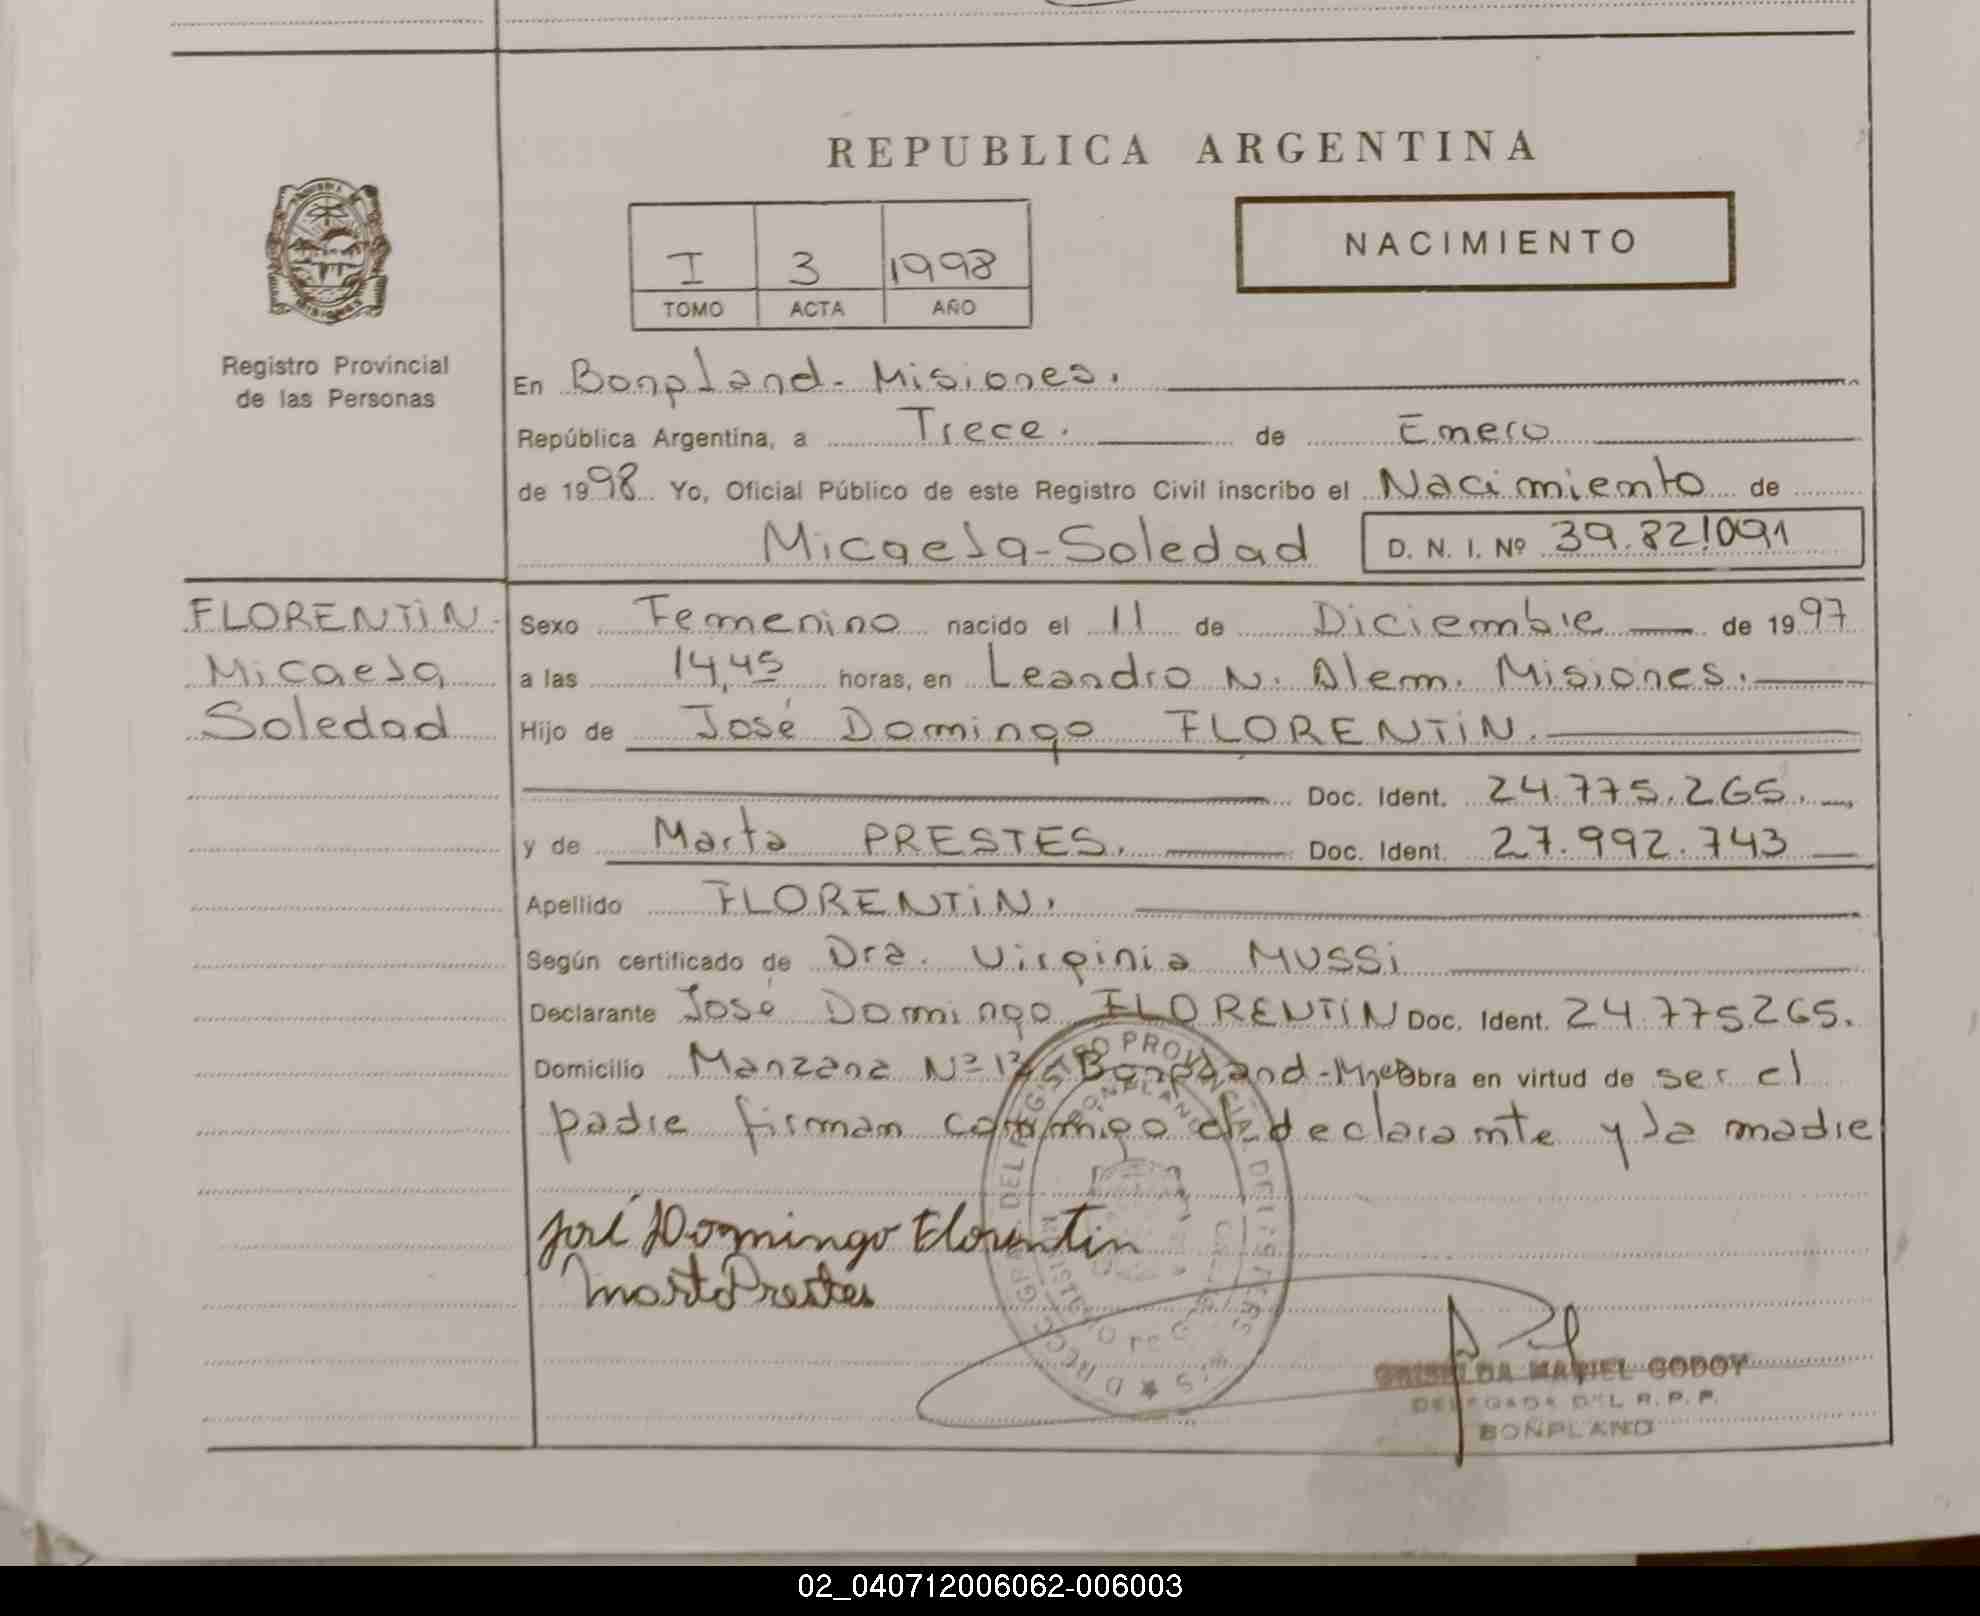 REPUBLICA ARGENTINA
I 3 1998
TOMO ACTA AÑO
NACIMIENTO
Registro Provincial
de las Personas
En Bonpland - Misiones.
República Argentina, a Trece. de Enero
de 1998 Yo, Oficial Público de este Registro Civil inscribo el Nacimiento de
Micaela - Soledad D. N. I. Nº 39.821091
FLORENTIN -
Micaela
Soledad
Sexo Femenino nacido el 11 de Diciembre de 1997
a las 14,45 horas, en Leandro N. Alem. Misiones.
Hijo de José Domingo FLORENTIN.
Doc. Ident. 24.775.265.
y de Marta PRESTES. Doc. Ident. 27.992.743
Apellido FLORENTIN.
Según certificado de Dra. Virginia MUSSI
Declarante José Domingo FLORENTIN Doc. Ident. 24.775265.
Domicilio Manzana Nº Bonpland - Mnes Obra en virtud de ser el
padre firman conmigo el declarante y la madre
José Domingo Florentin
Marta Prestes
GRISELDA MARIEL GODOY
DELEGADA DEL R. P. P.
BONPLAND
02_040712006062-006003